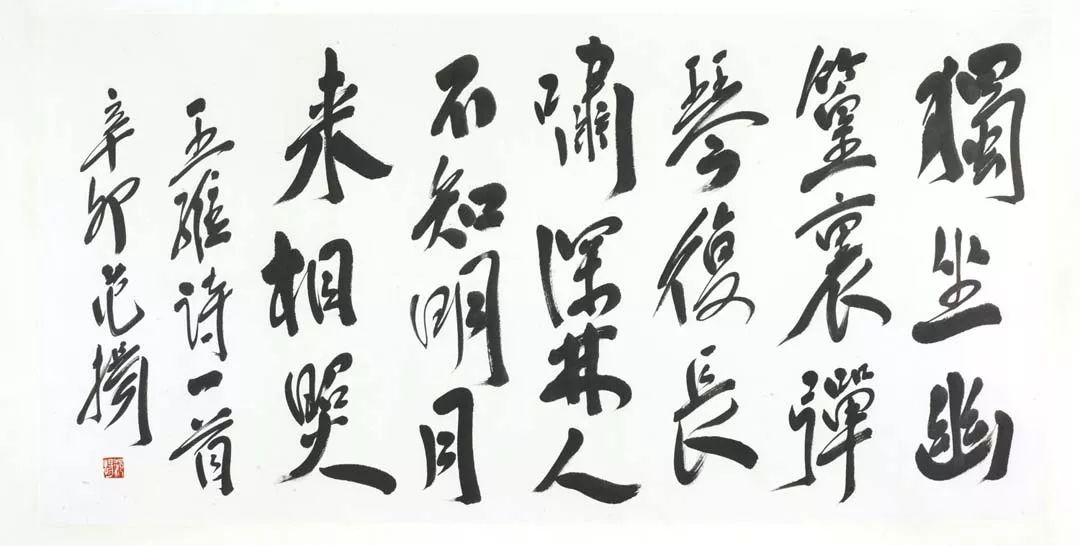 獨坐幽
篁裏彈
琴復長
嘯深林人
不知明月
来相照
王維诗一首
辛卯范揚